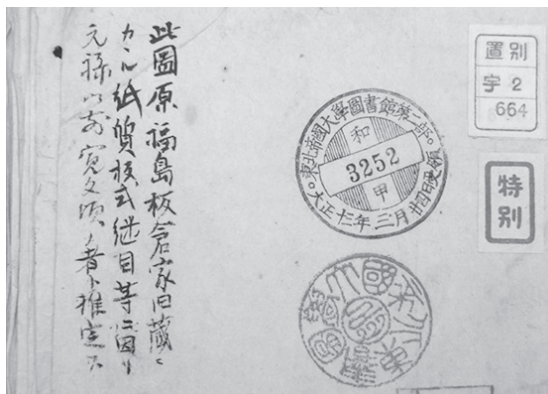 別置
字 2
664
特別
東北帝國大學圖書館第二部
和
3252
甲
大正十三年三月廿四日受領
此圖原福島板倉家旧蔵ニ
カヽル紙質板式継目等ニ因リ
元禄以前寛文頃ノ者ト推定ス